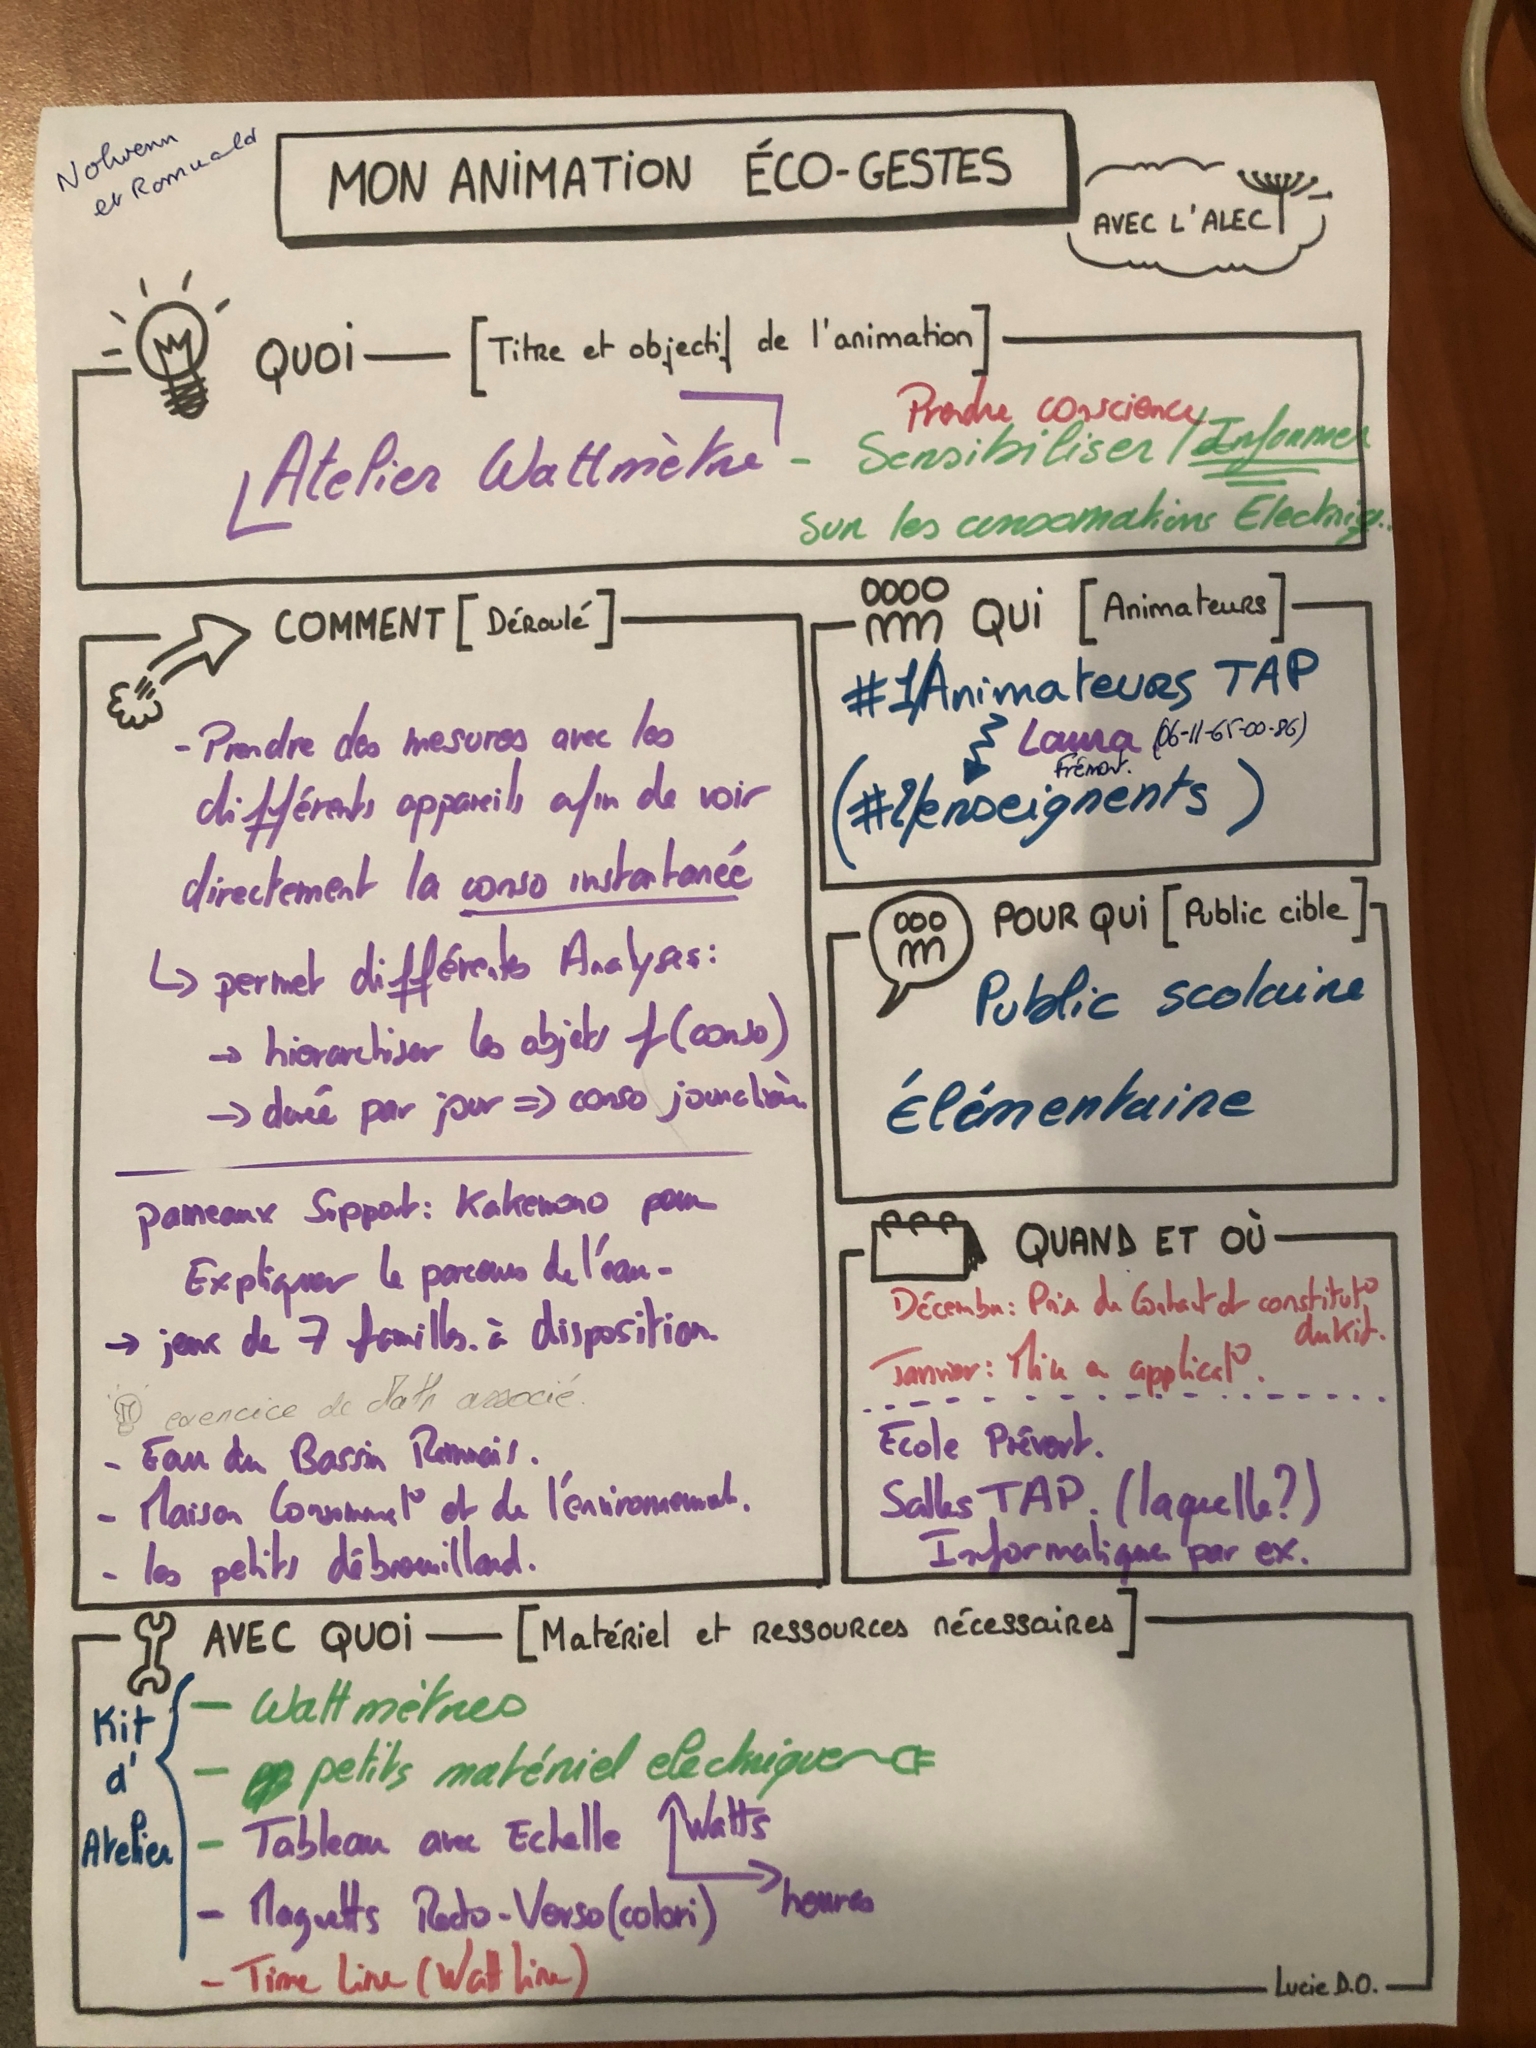 Nolwenn
et Romuald
MON ANIMATION ÉCO-GESTES
AVEC L'ALEC
QUOI [Titre et objectif de l'animation]
Prendre conscience
Atelier Wattmètre - Sensibiliser / Informer
sur les consomations Electriq..
COMMENT [Déroulé]
- Prendre des mesures avec les
différents appareils afin de voir
directement la conso instantanéé
↳ permet différents Analyses:
→ hiérarchiser les objets f(conso)
→ durée par jour => conso journalièr.
panneaux Support: Kakemono pour
Expliquer le parcours de l'eau -
→ jeux de 7 familles. à disposition.
exercice de Math associé.
- Eau du Bassin Rennais.
- Maison Consommat° et de l'environnement.
- les petits débrouillard.
QUI [Animateurs]
#1/Animateurs TAP
Laura (06-11-65-00-86)
Frémont.
(#2/enseignents)
POUR QUI [Public cible]
Public scolaire
Élémentaire
QUAND ET OÙ
Décembre: Prix de Contact et constitut°
du kit.
Janvier: Mise en applicat°.
Ecole Prévert.
Salles TAP. (laquelle?)
Informatique par ex.
AVEC QUOI [Matériel et ressources nécessaires]
Kit
d'
Atelier
- Wattmètres
- petits matériel electrique
- Tableau avec Echelle Watts
heures
- Maquetts Recto-Verso (colori)
- Time Line (Watt line)
Lucie D.O.